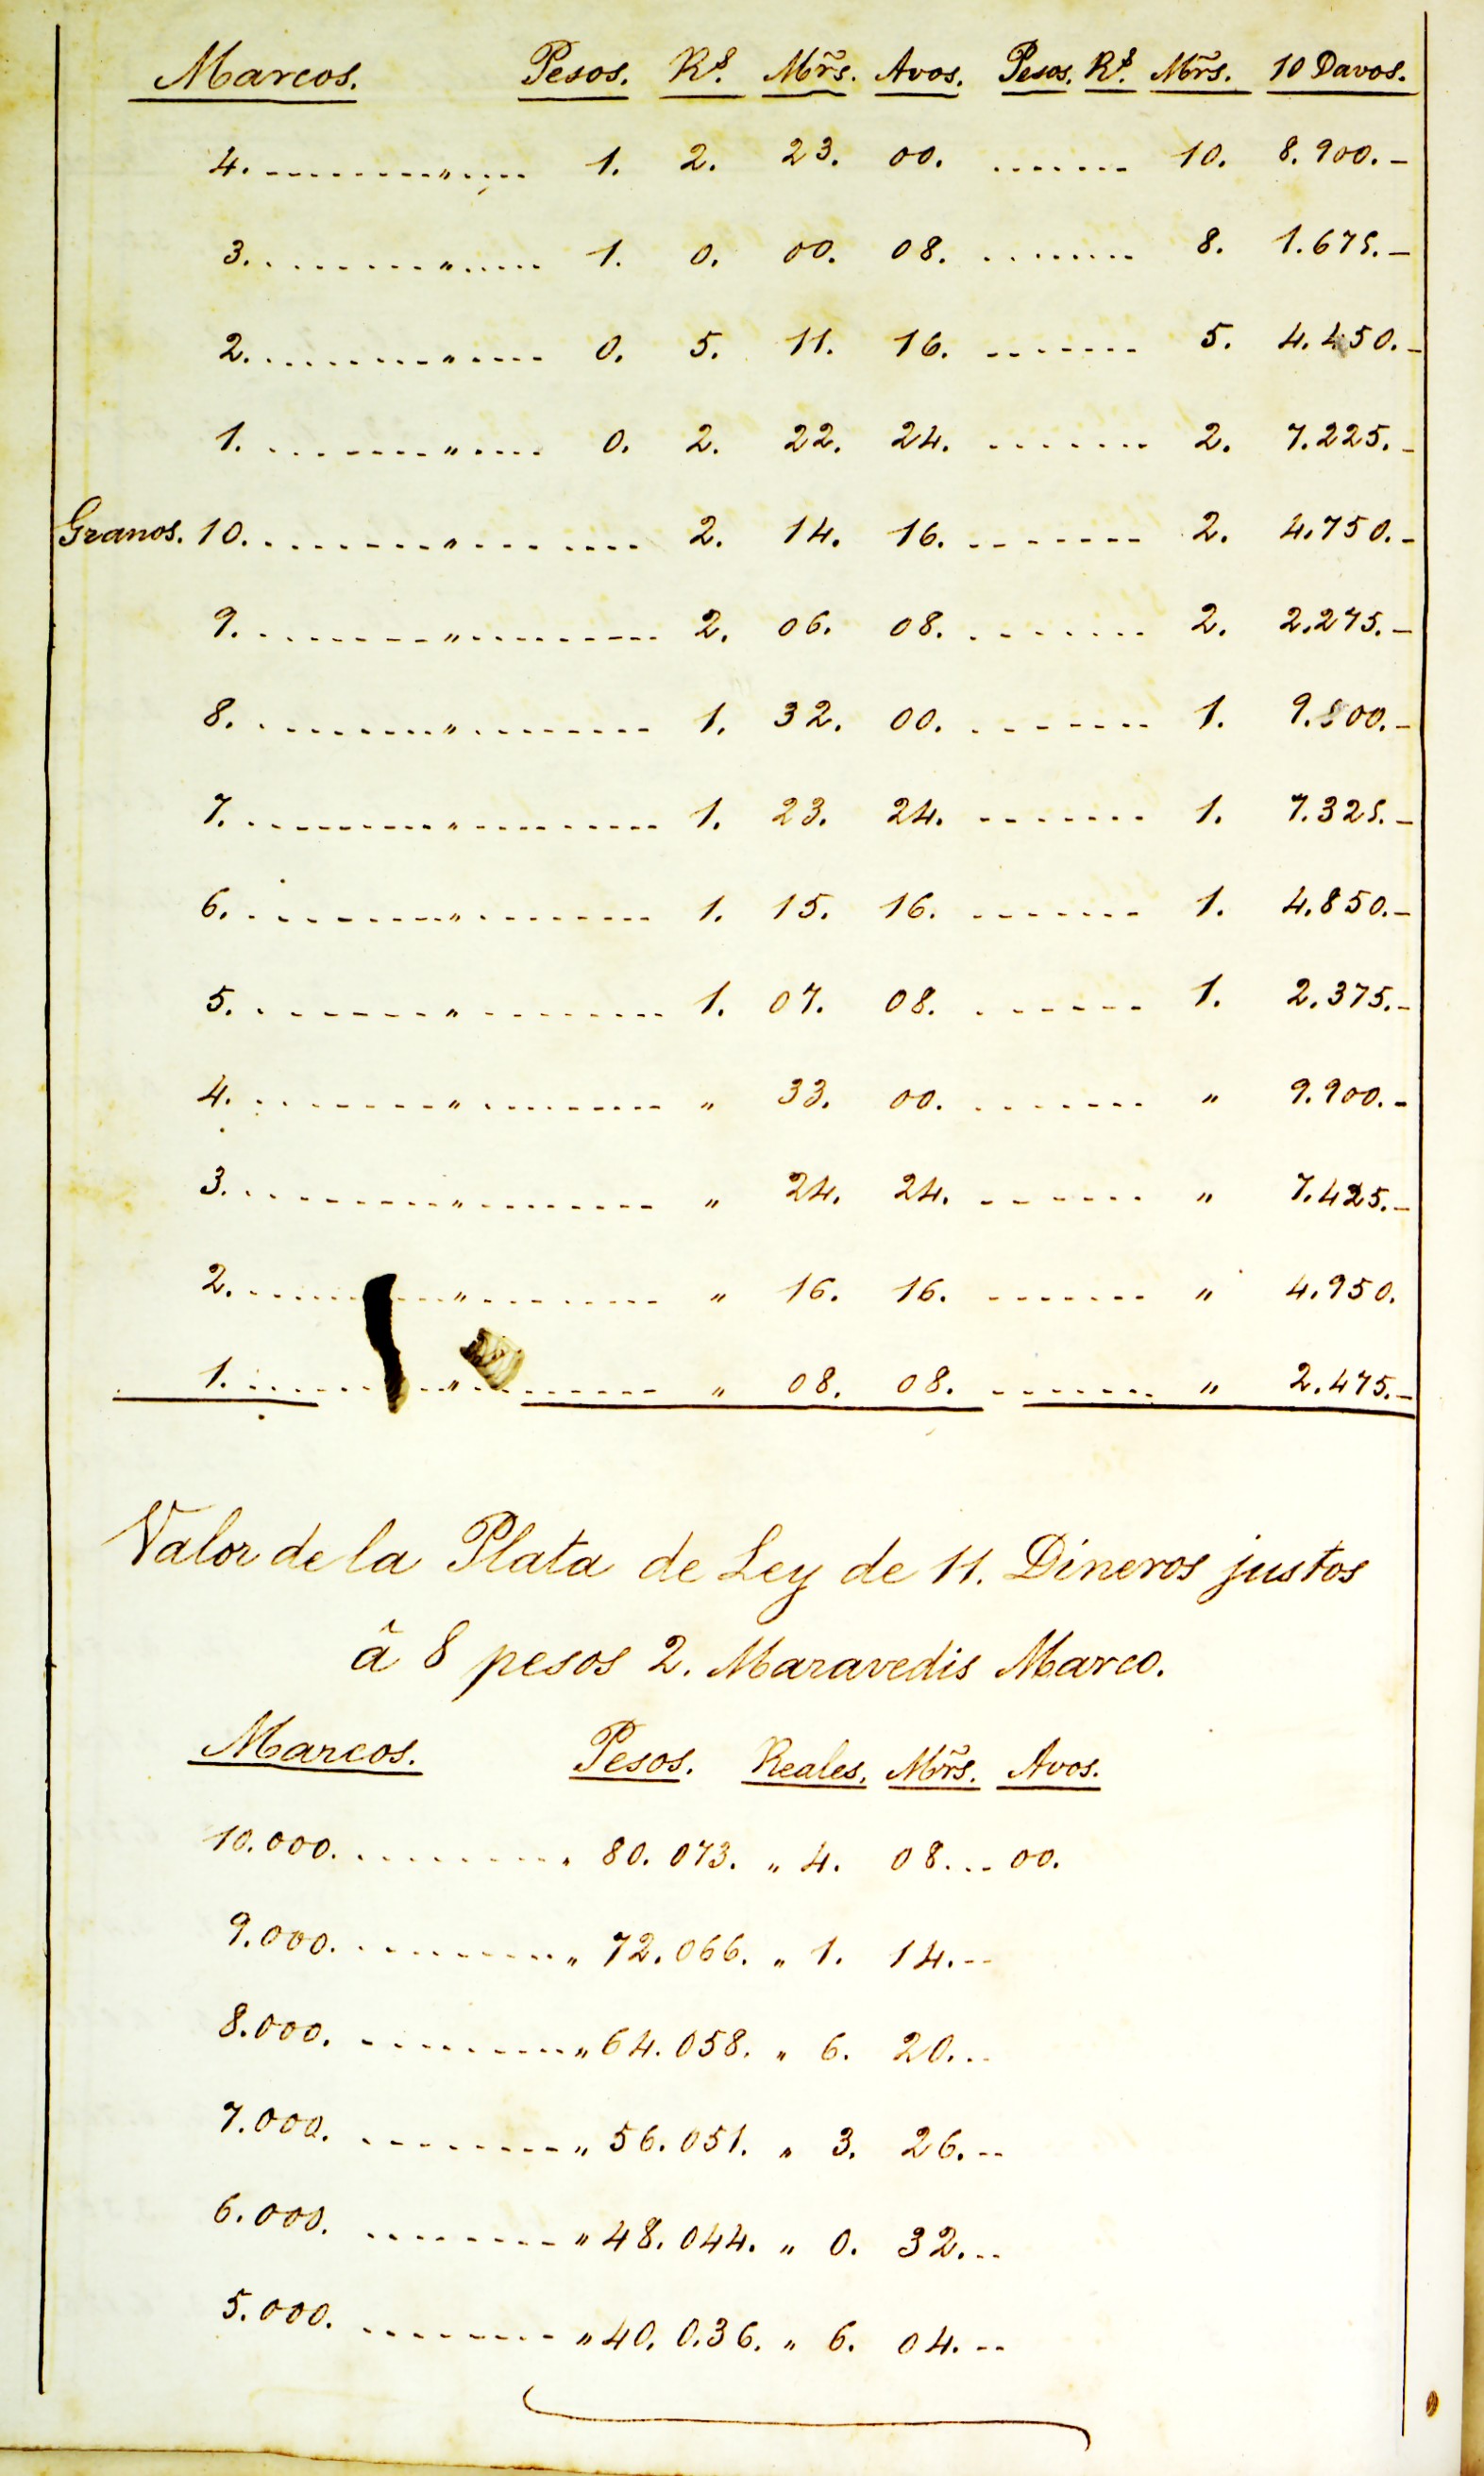 Marcos. Pesos. Rs. Mrs. Avos. Pesos. Rs. Mrs. 10 Davos.
4. .......... " ..... 1. 2. 23. 00. ....... 10. 8.900.-
3. .......... " ..... 1. 0. 00. 08. ....... 8. 1.675.-
2. .......... " ..... 0. 5. 11. 16. ....... 5. 4.450.-
1. .......... " ..... 0. 2. 22. 24. ....... 2. 7.225.-
Granos. 10. .......... " ......... 2. 14. 16. ....... 2. 4.750.-
9. .......... " ......... 2. 06. 08. ....... 2. 2.275.-
8. .......... " ......... 1. 32. 00. ....... 1. 9.800.-
7. .......... " ......... 1. 23. 24. ....... 1. 7.325.-
6. .......... " ......... 1. 15. 16. ....... 1. 4.850.-
5. .......... " ......... 1. 07. 08. ....... 1. 2.375.-
4. .......... " ......... " 33. 00. ....... " 9.900.-
3. .......... " ......... " 24. 24. ....... " 7.425.-
2. .......... " ......... " 16. 16. ....... " 4.950.
1. .......... " ......... " 08. 08. ....... " 2.475.-
Valor de la Plata de Ley de 11. Dineros justos
â 8 pesos 2. Maravedis Marco.
Marcos. Pesos. Reales. Mrs. Avos.
10.000. .......... " 80.073. " 4. 08... 00.
9.000. .......... " 72.066. " 1. 14.--
8.000. .......... " 64.058. " 6. 20...
7.000. .......... " 56.051. " 3. 26.--
6.000. .......... " 48.044. " 0. 32...
5.000. .......... " 40.0.36. " 6. 04.--